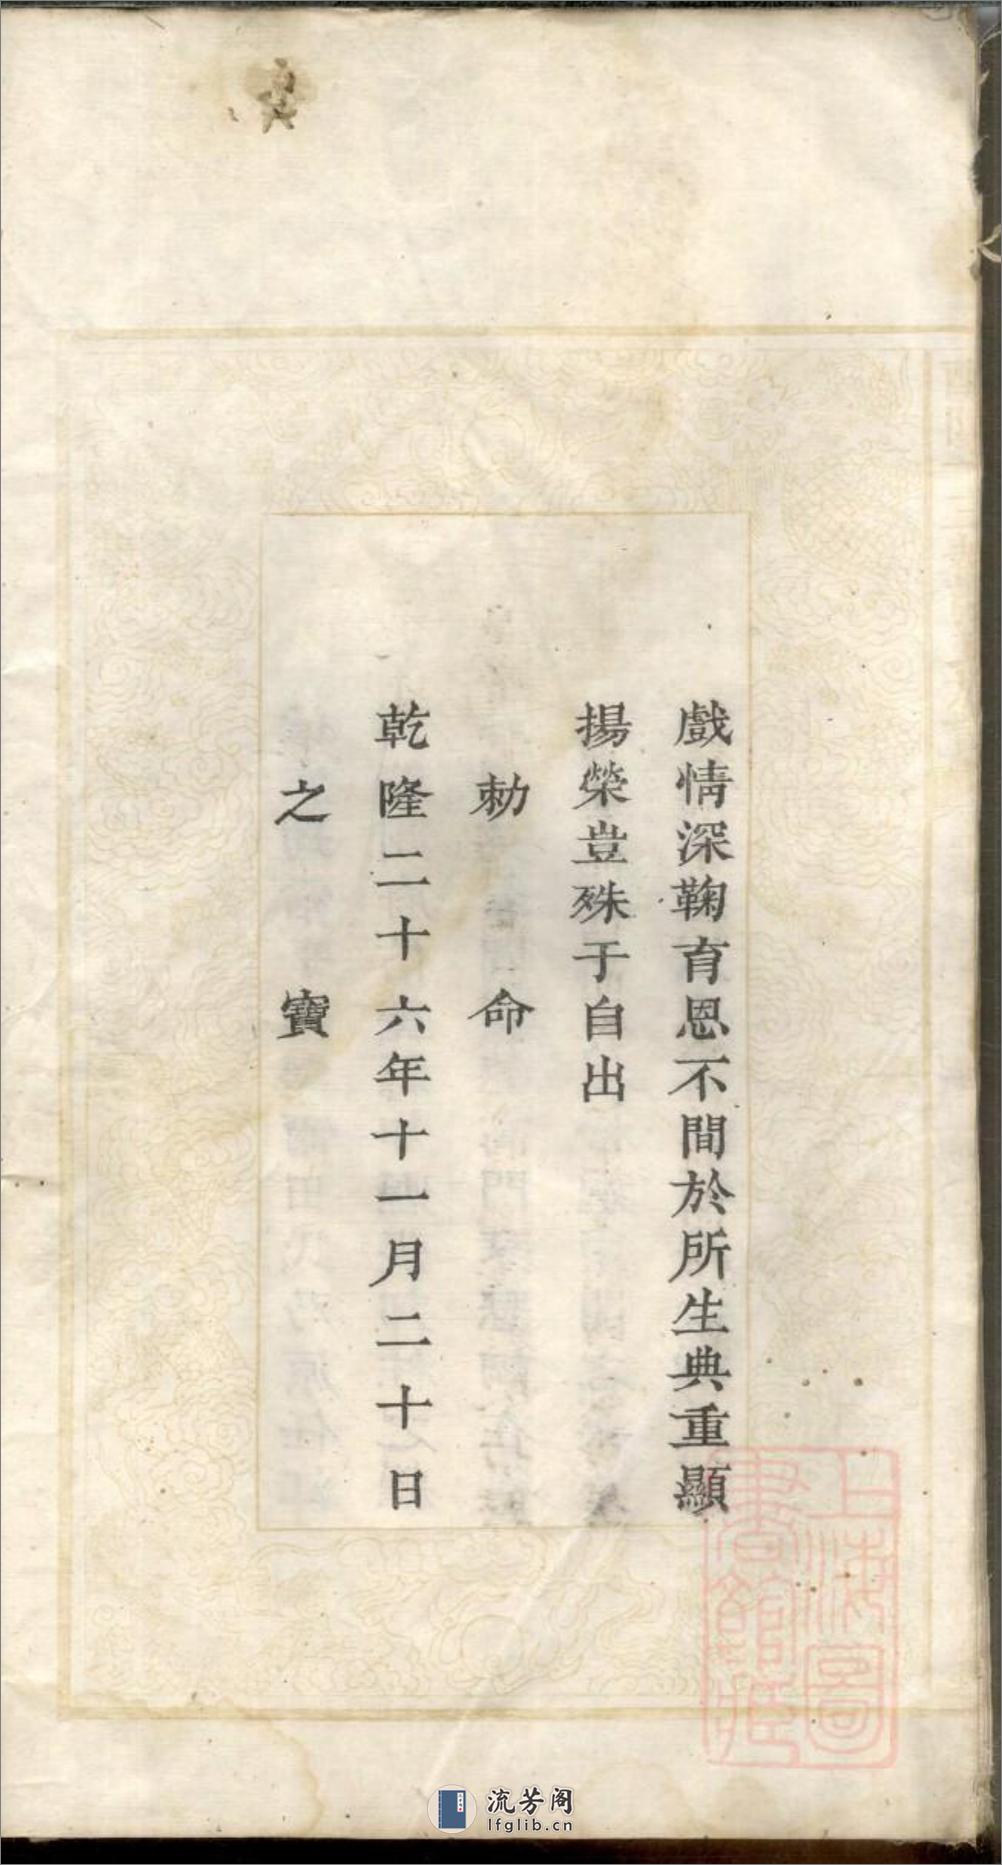 戲情深鞠育恩不間於所生典重顯
揚榮豈殊于自出
勅命
乾隆二十六年十一月二十日
之寶
上海圖
書館藏
流芳阁
lfglib.cn